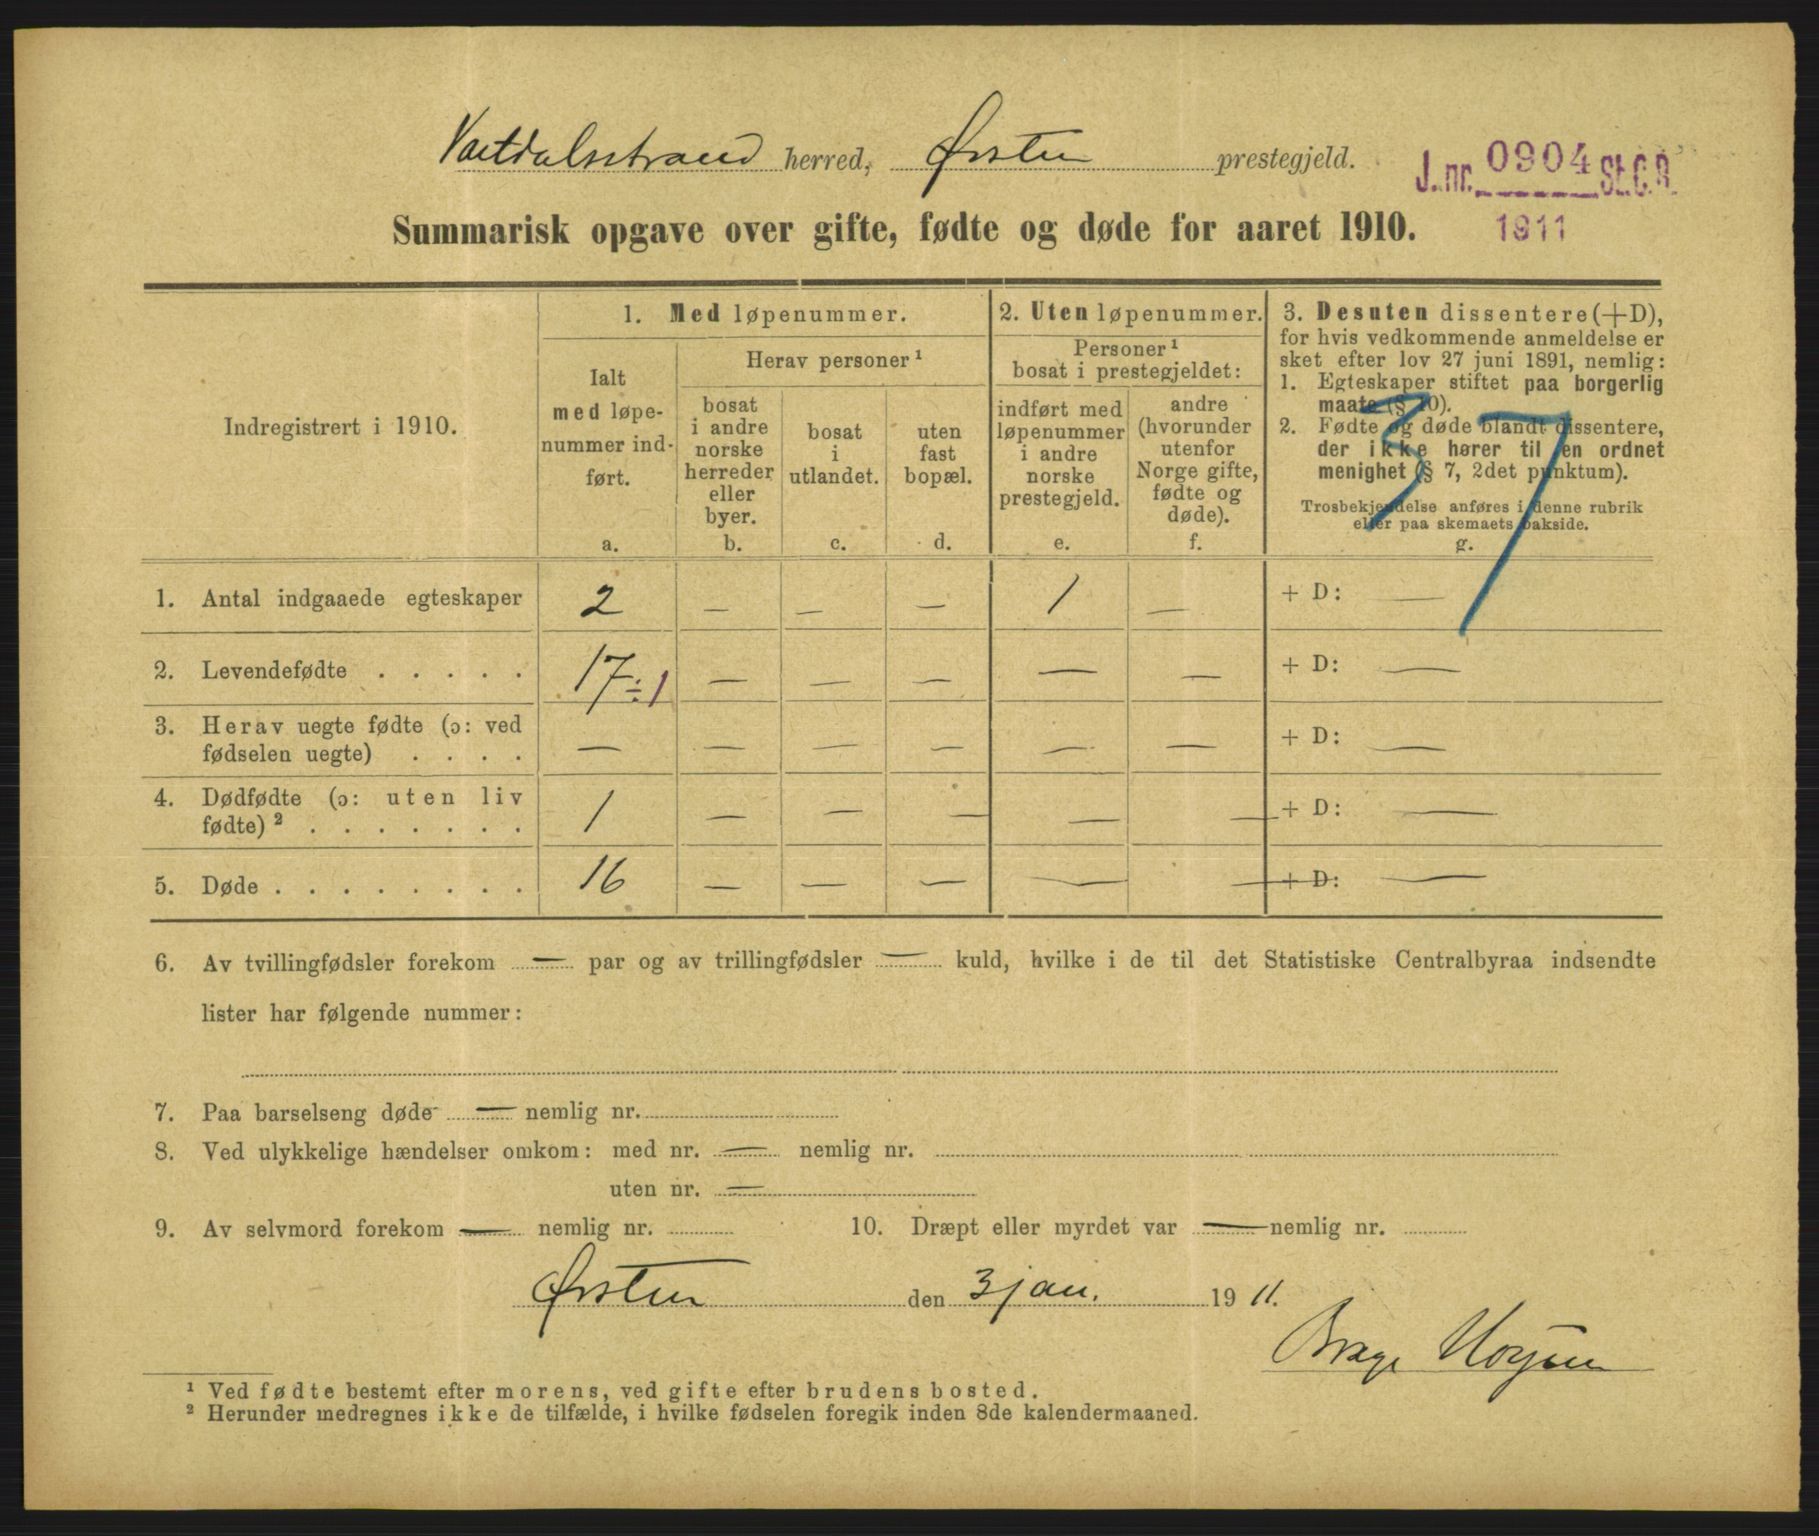 Vartdalsstrand herred, Ørsten prestegjeld.
J. nr. 0904 St. C. B.
1911
Summarisk opgave over gifte, fødte og døde for aaret 1910.
Indregistrert i 1910.
1. Med løpenummer.
Ialt
med løpe-
nummer ind-
ført.
a.
Herav personer ¹
bosat
i andre
norske
herreder
eller
byer.
b.
bosat
i
utlandet.
c.
uten
fast
bopæl.
d.
2. Uten løpenummer.
Personer ¹
bosat i prestegjeldet:
indført med
løpenummer
i andre
norske
prestegjeld.
e.
andre
(hvorunder
utenfor
Norge gifte,
fødte og
døde).
f.
3. Desuten dissentere (+D),
for hvis vedkommende anmeldelse er
sket efter lov 27 juni 1891, nemlig:
1. Egteskaper stiftet paa borgerlig
maate (§ 10).
2. Fødte og døde blandt dissentere,
der ikke hører til en ordnet
menighet (§ 7, 2det punktum).
Trosbekjendelse anføres i denne rubrik
eller paa skemaets bakside.
g.
37
1. Antal indgaaede egteskaper 2 — — — 1 — + D: —
2. Levendefødte . . . . . 17 ÷ 1 — — — — — + D: —
3. Herav uegte fødte (ɔ: ved
fødselen uegte) . . . . — — — — — — + D: —
4. Dødfødte (ɔ: uten liv
fødte) ² . . . . . . . 1 — — — — — + D: —
5. Døde . . . . . . . . 16 — — — — — + D: —
6. Av tvillingfødsler forekom — par og av trillingfødsler — kuld, hvilke i de til det Statistiske Centralbyraa indsendte
lister har følgende nummer:
7. Paa barselseng døde — nemlig nr.
8. Ved ulykkelige hændelser omkom: med nr. — nemlig nr.
uten nr. —
9. Av selvmord forekom — nemlig nr. 10. Dræpt eller myrdet var — nemlig nr.
Ørsten den 3 jan. 1911.
¹ Ved fødte bestemt efter morens, ved gifte efter brudens bosted.
² Herunder medregnes ikke de tilfælde, i hvilke fødselen foregik inden 8de kalendermaaned.